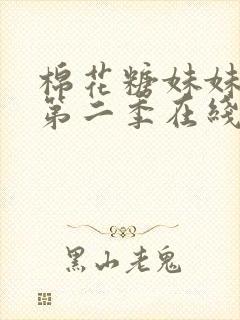 棉花糖妹妹
第二季在线
黑山老鬼